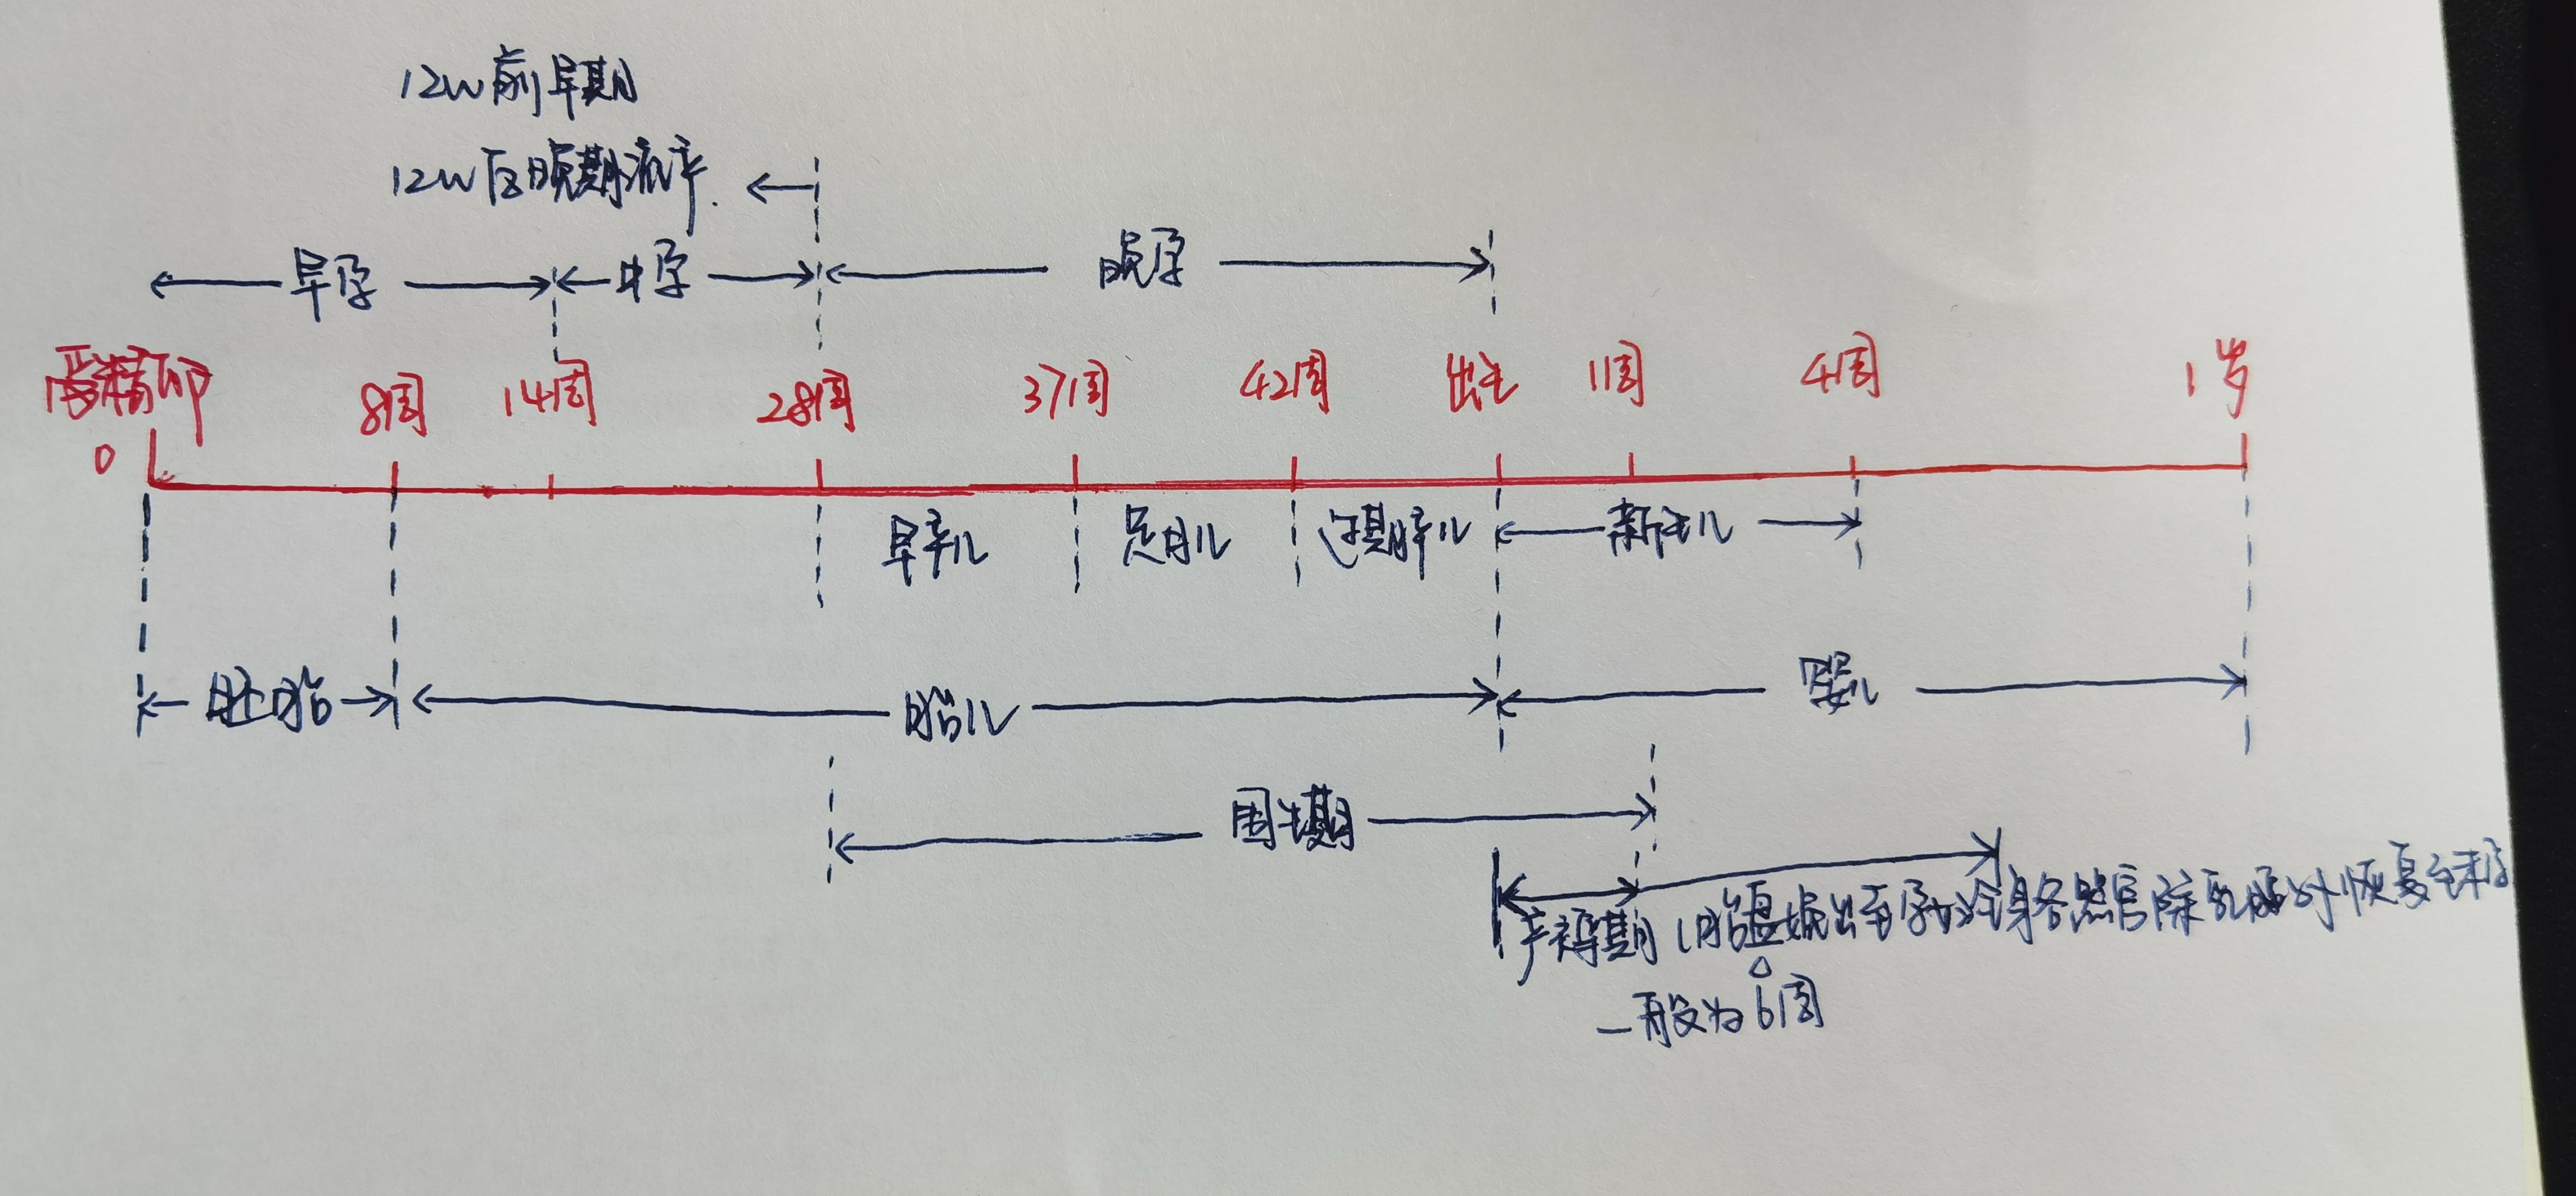 12w前早期
12w后晚期流产.
早孕 中孕 晚孕
受精卵 8周 14周 28周 37周 42周 出生 1周 4周 1岁
0
早产儿 足月儿 过期产儿 新生儿
胚胎 胎儿 婴儿
围生期
产褥期(胎盘娩出至孕妇全身各器官除乳腺外恢复至未孕
一般为6周